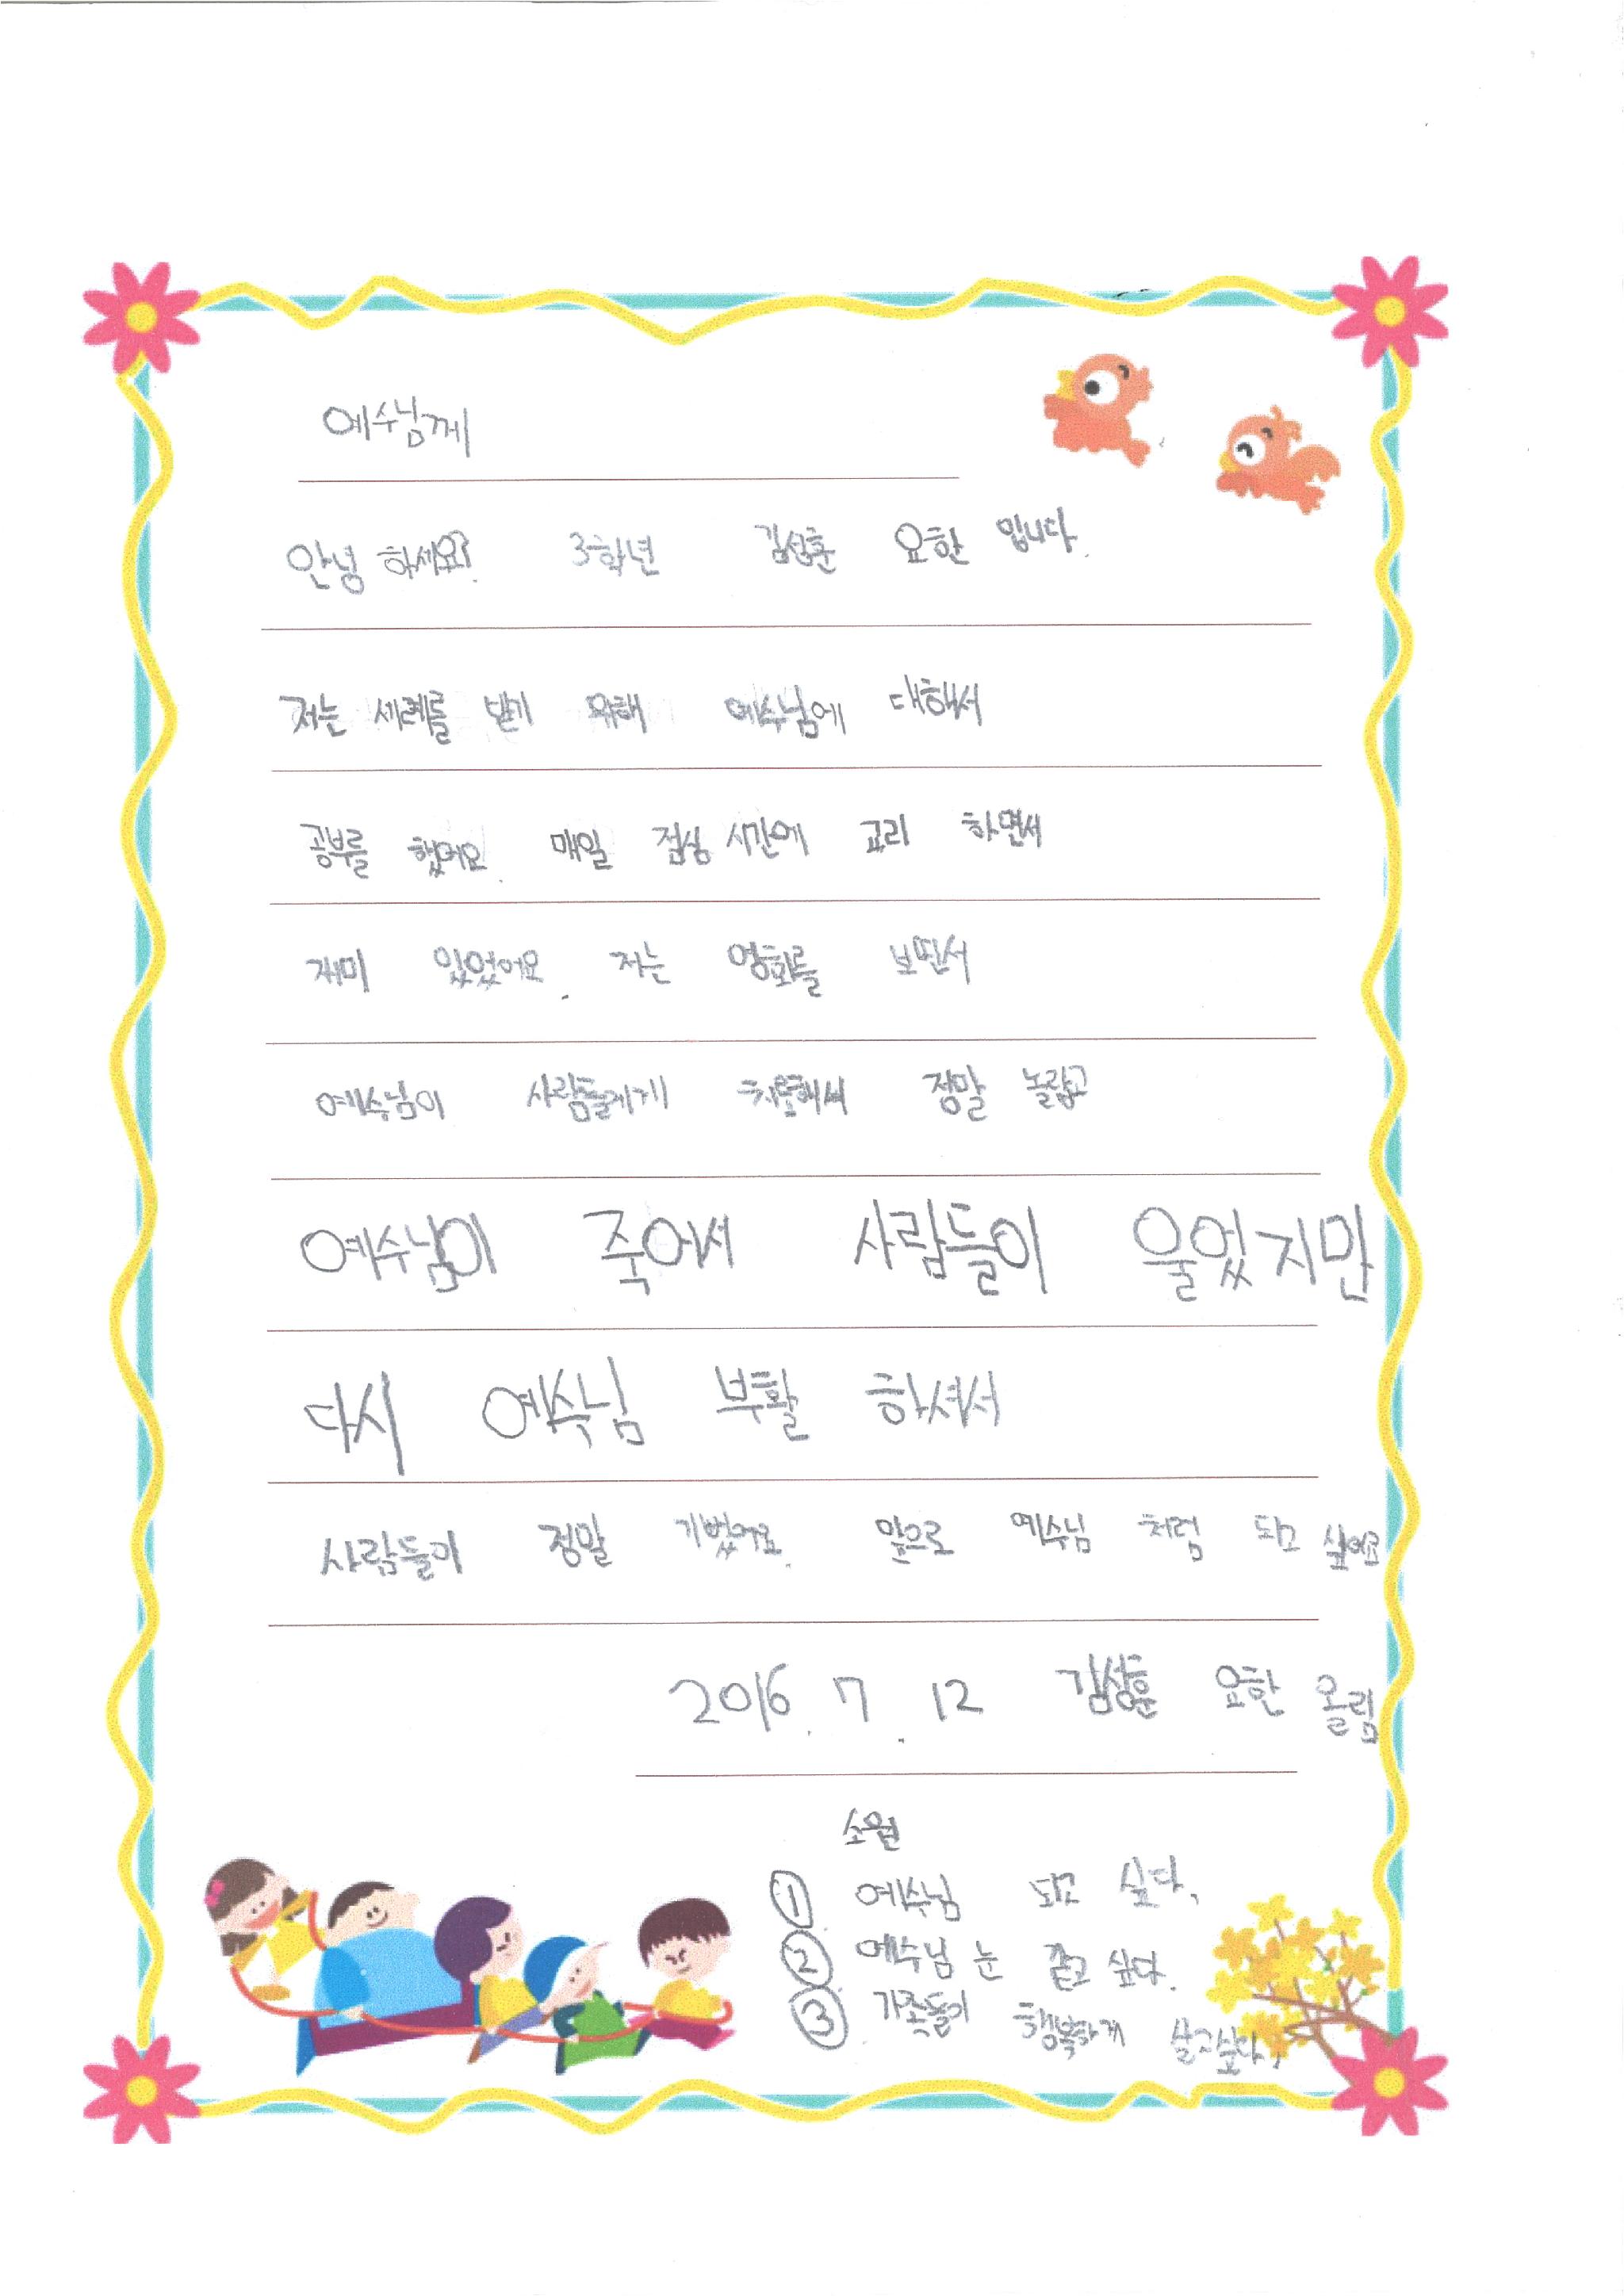 예수님께
안녕 하세요? 3학년 김성훈 요한 입니다.
저는 세례를 받기 위해 예수님에 대해서
공부를 했어요. 매일 점심 시간에 교리 하면서
재미 있었어요. 저는 영화를 보면서
예수님이 사람들에게 치료해서 정말 놀랍고
예수님이 죽어서 사람들이 울었지만
다시 예수님 부활 하셔서
사람들이 정말 기뻤어요. 앞으로 예수님 처럼 되고 싶어요
2016. 7. 12 김성훈 요한 올림
소원
① 예수님 되고 싶다.
② 예수님 눈 같고 싶다.
③ 가족들이 행복하게 살고 싶다.